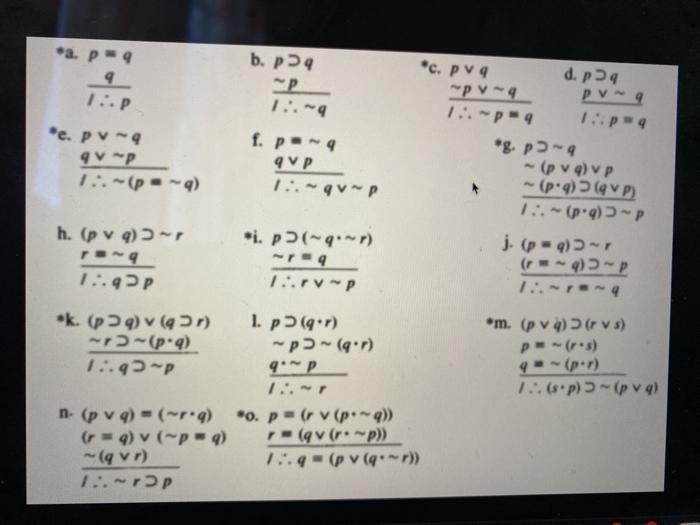 *a. p ≡ q
q
/∴ p
b. p ⊃ q
~p
/∴ ~q
*c. p v q
~p v ~q
/∴ ~p ≡ q
d. p ⊃ q
p v ~q
/∴ p ≡ q
*e. p v ~q
q v ~p
/∴ ~(p ≡ ~q)
f. p ≡ ~q
q v p
/∴ ~q v ~p
*g. p ⊃ ~q
~(p v q) v p
~(p·q) ⊃ (q v p)
/∴ ~(p·q) ⊃ ~p
h. (p v q) ⊃ ~r
r ≡ ~q
/∴ q ⊃ p
*i. p ⊃ (~q·~r)
~r ≡ q
/∴ r v ~p
j. (p ≡ q) ⊃ ~r
(r ≡ ~q) ⊃ ~p
/∴ ~r ≡ ~q
*k. (p ⊃ q) v (q ⊃ r)
~r ⊃ ~(p·q)
/∴ q ⊃ ~p
l. p ⊃ (q·r)
~p ⊃ ~(q·r)
q·~p
/∴ ~r
*m. (p v q) ⊃ (r v s)
p ≡ ~(r·s)
q ≡ ~(p·r)
/∴ (s·p) ⊃ ~(p v q)
n. (p v q) ≡ (~r·q)
(r ≡ q) v (~p ≡ q)
~(q v r)
/∴ ~r ⊃ p
*o. p ≡ (r v (p·~q))
r ≡ (q v (r·~p))
/∴ q ≡ (p v (q·~r))